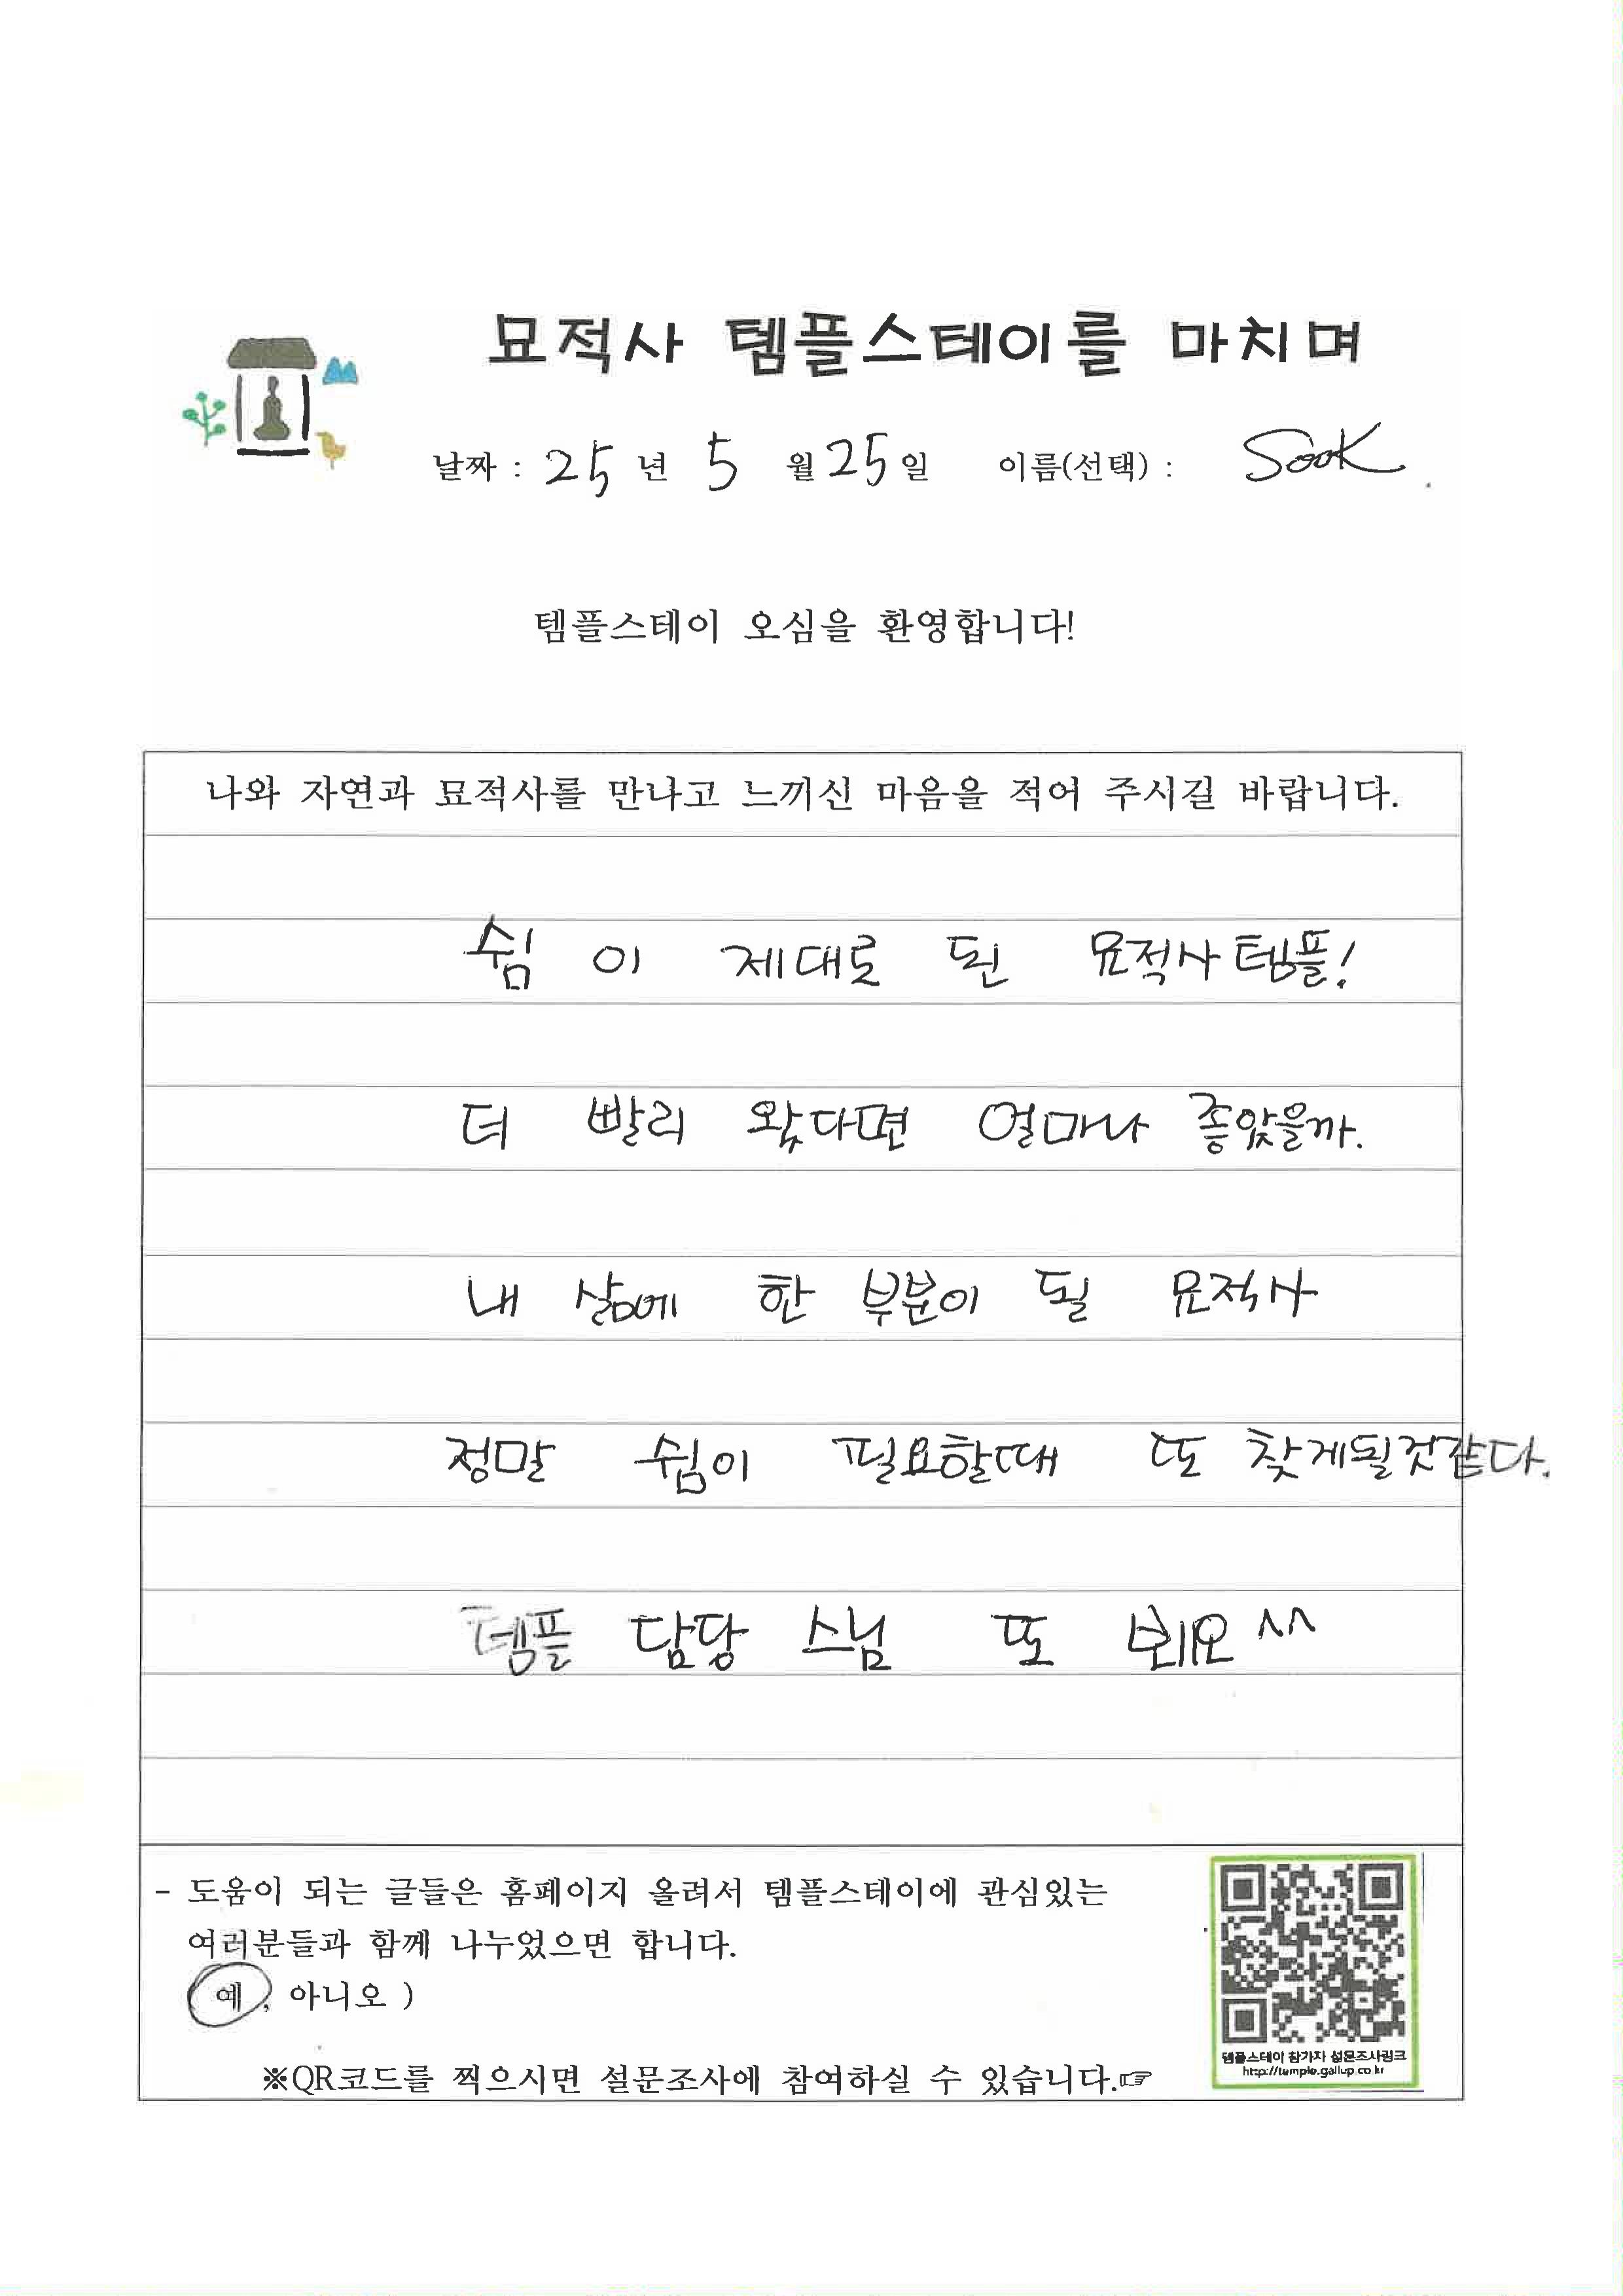 묘적사 템플스테이를 마치며
날짜 : 25 년 5 월 25 일 이름(선택) : SooK.
템플스테이 오심을 환영합니다!
나와 자연과 묘적사를 만나고 느끼신 마음을 적어 주시길 바랍니다.
쉼 이 제대로 된 묘적사 템플!
더 빨리 왔다면 얼마나 좋았을까.
내 삶에 한 부분이 될 묘적사
정말 쉼이 필요할때 또 찾게될것같다.
템플 담당 스님 또 뵈요 ^^
- 도움이 되는 글들은 홈페이지 올려서 템플스테이에 관심있는
여러분들과 함께 나누었으면 합니다.
예, 아니오 )
템플스테이 참가자 설문조사링크
http://temple.gallup.co.kr
※QR코드를 찍으시면 설문조사에 참여하실 수 있습니다.☞